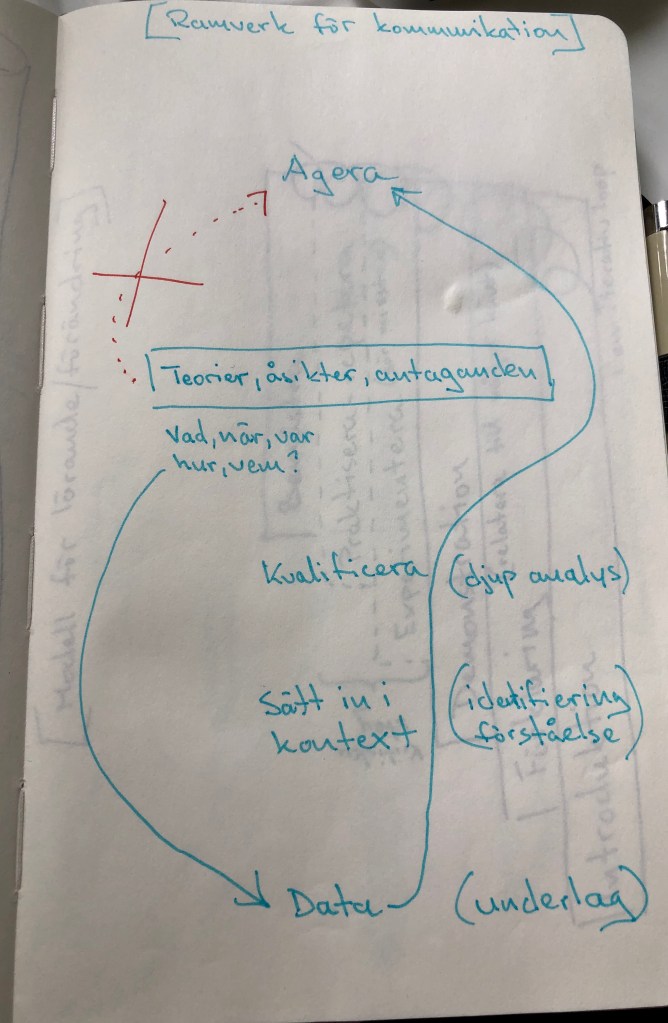 [Ramverk för kommunikation]
Agera
Teorier, åsikter, antaganden
Vad, när, var
hur, vem?
Kvalificera (djup analys)
Sätt in i (identifiering
kontext förståelse)
Data (underlag)
[Modell för lärande/förändring]